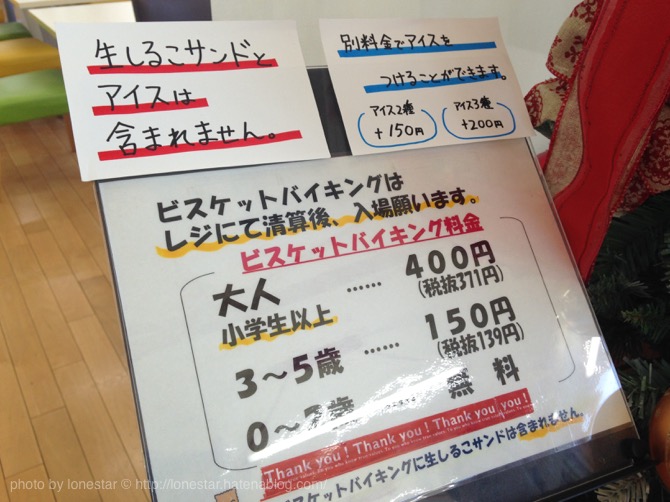 生しるこサンドと
アイスは
含まれません。
別料金でアイスを
つけることができます。
アイス2種
+150円
アイス3種
+200円
ビスケットバイキングは
レジにて清算後、入場願います。
ビスケットバイキング料金
大人 …… 400円
小学生以上 (税抜371円)
3〜5歳 …… 150円
(税抜139円)
0〜2歳 無料
Thank you! Thank you! Thank you you!
ビスケットバイキングに生しるこサンドは含まれません。
photo by lonestar © http://lonestar.hatenablog.com/